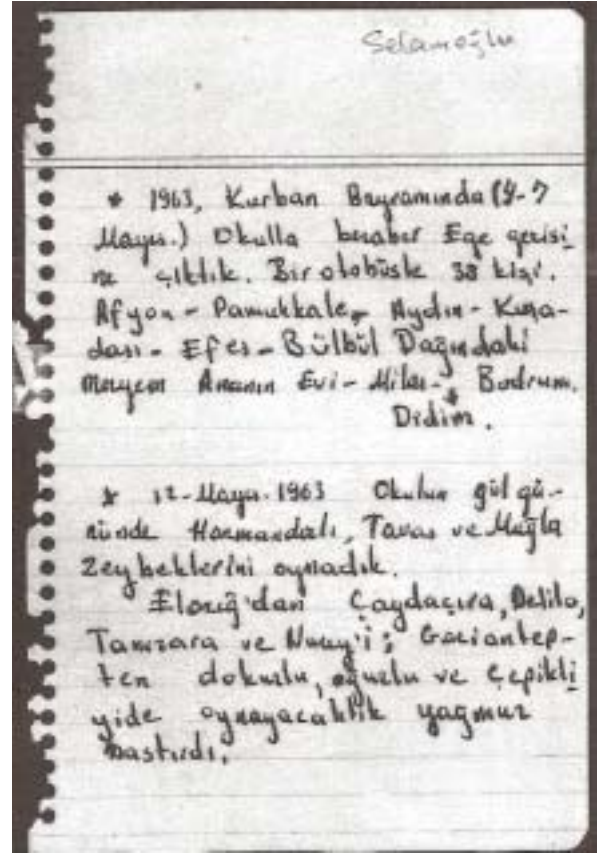 Selamoğlu
* 1963, Kurban Bayramında (4-7
Mayıs.) Okulla beraber Ege gezisi
ne çıktık. Bir otobüsle 38 kişi.
Afyon - Pamukkale - Aydın - Kuşa-
dası - Efes - Bülbül Dağındaki
Meryem Ananın Evi - Milas - Bodrum.
Didim.
* 12-Mayıs-1963 Okulun gül gü-
nünde Harmandalı, Tavas ve Muğla
Zeybeklerini oynadık.
Elazığ'dan Çaydaçıra, Delilo,
Tamzara ve Nurey'i; Gaziantep-
ten dokuzlu, oğuzlu ve Çepikli
yide oynayacaktık yağmur
bastırdı.